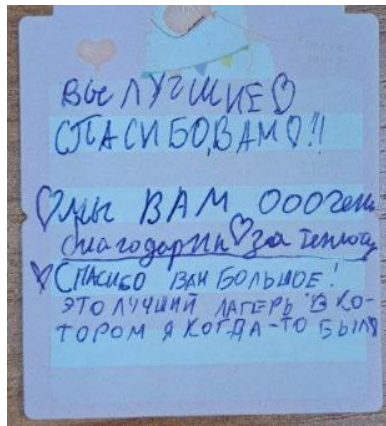 ВЫ ЛУЧШИЕ♡
СПАСИБО, ВАМ♡!!
♡МЫ ВАМ ОООчень
благодарны♡за теплоту
♡СПАСИБО ВАМ БОЛЬШОЕ!
ЭТО ЛУЧШИЙ ЛАГЕРЬ В КО-
ТОРОМ Я КОГДА-ТО БЫЛА